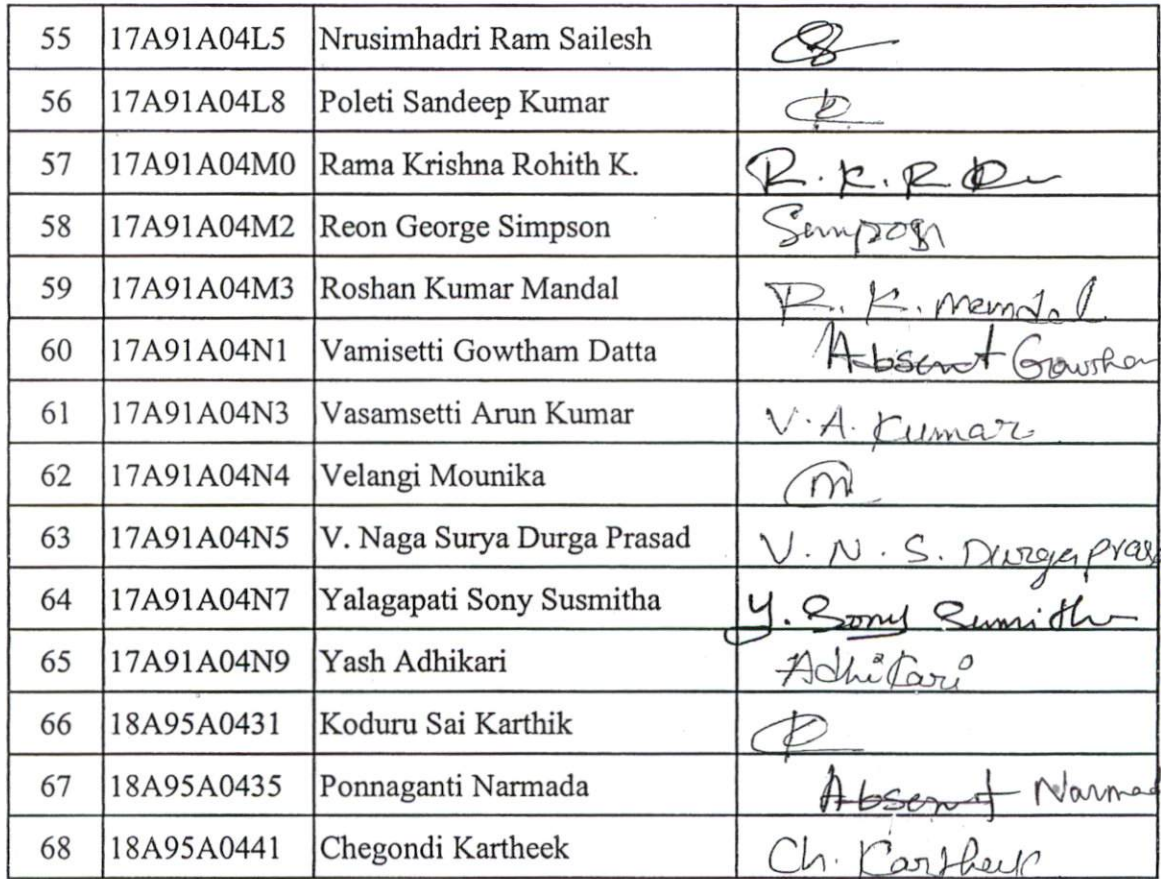 55 17A91A04L5 Nrusimhadri Ram Sailesh
56 17A91A04L8 Poleti Sandeep Kumar
57 17A91A04M0 Rama Krishna Rohith K. R.K.R
58 17A91A04M2 Reon George Simpson Simpson
59 17A91A04M3 Roshan Kumar Mandal R. K. Mandal
60 17A91A04N1 Vamisetti Gowtham Datta Absent Gowtham
61 17A91A04N3 Vasamsetti Arun Kumar V.A. Kumar
62 17A91A04N4 Velangi Mounika M
63 17A91A04N5 V. Naga Surya Durga Prasad V. N. S. Durga pras
64 17A91A04N7 Yalagapati Sony Susmitha Y. Sony Sumitha
65 17A91A04N9 Yash Adhikari Adhikari
66 18A95A0431 Koduru Sai Karthik
67 18A95A0435 Ponnaganti Narmada Absent Narmad
68 18A95A0441 Chegondi Kartheek Ch. Kartheek